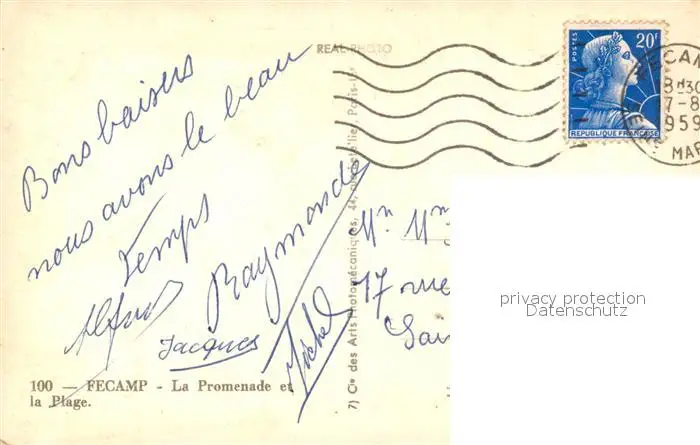 REAL PHOTO
Bons baisers
nous avons le beau
temps
Alfred Raymonde
Jacques Michel
100 — FECAMP - La Promenade et
la Plage.
7) Cie des Arts Photomécaniques, 44,
Paris-
POSTES 20F
REPUBLIQUE FRANÇAISE
FECAM
8H30
7-8
1959
MAR
Mr Mr
17 rue
privacy protection
Datenschutz